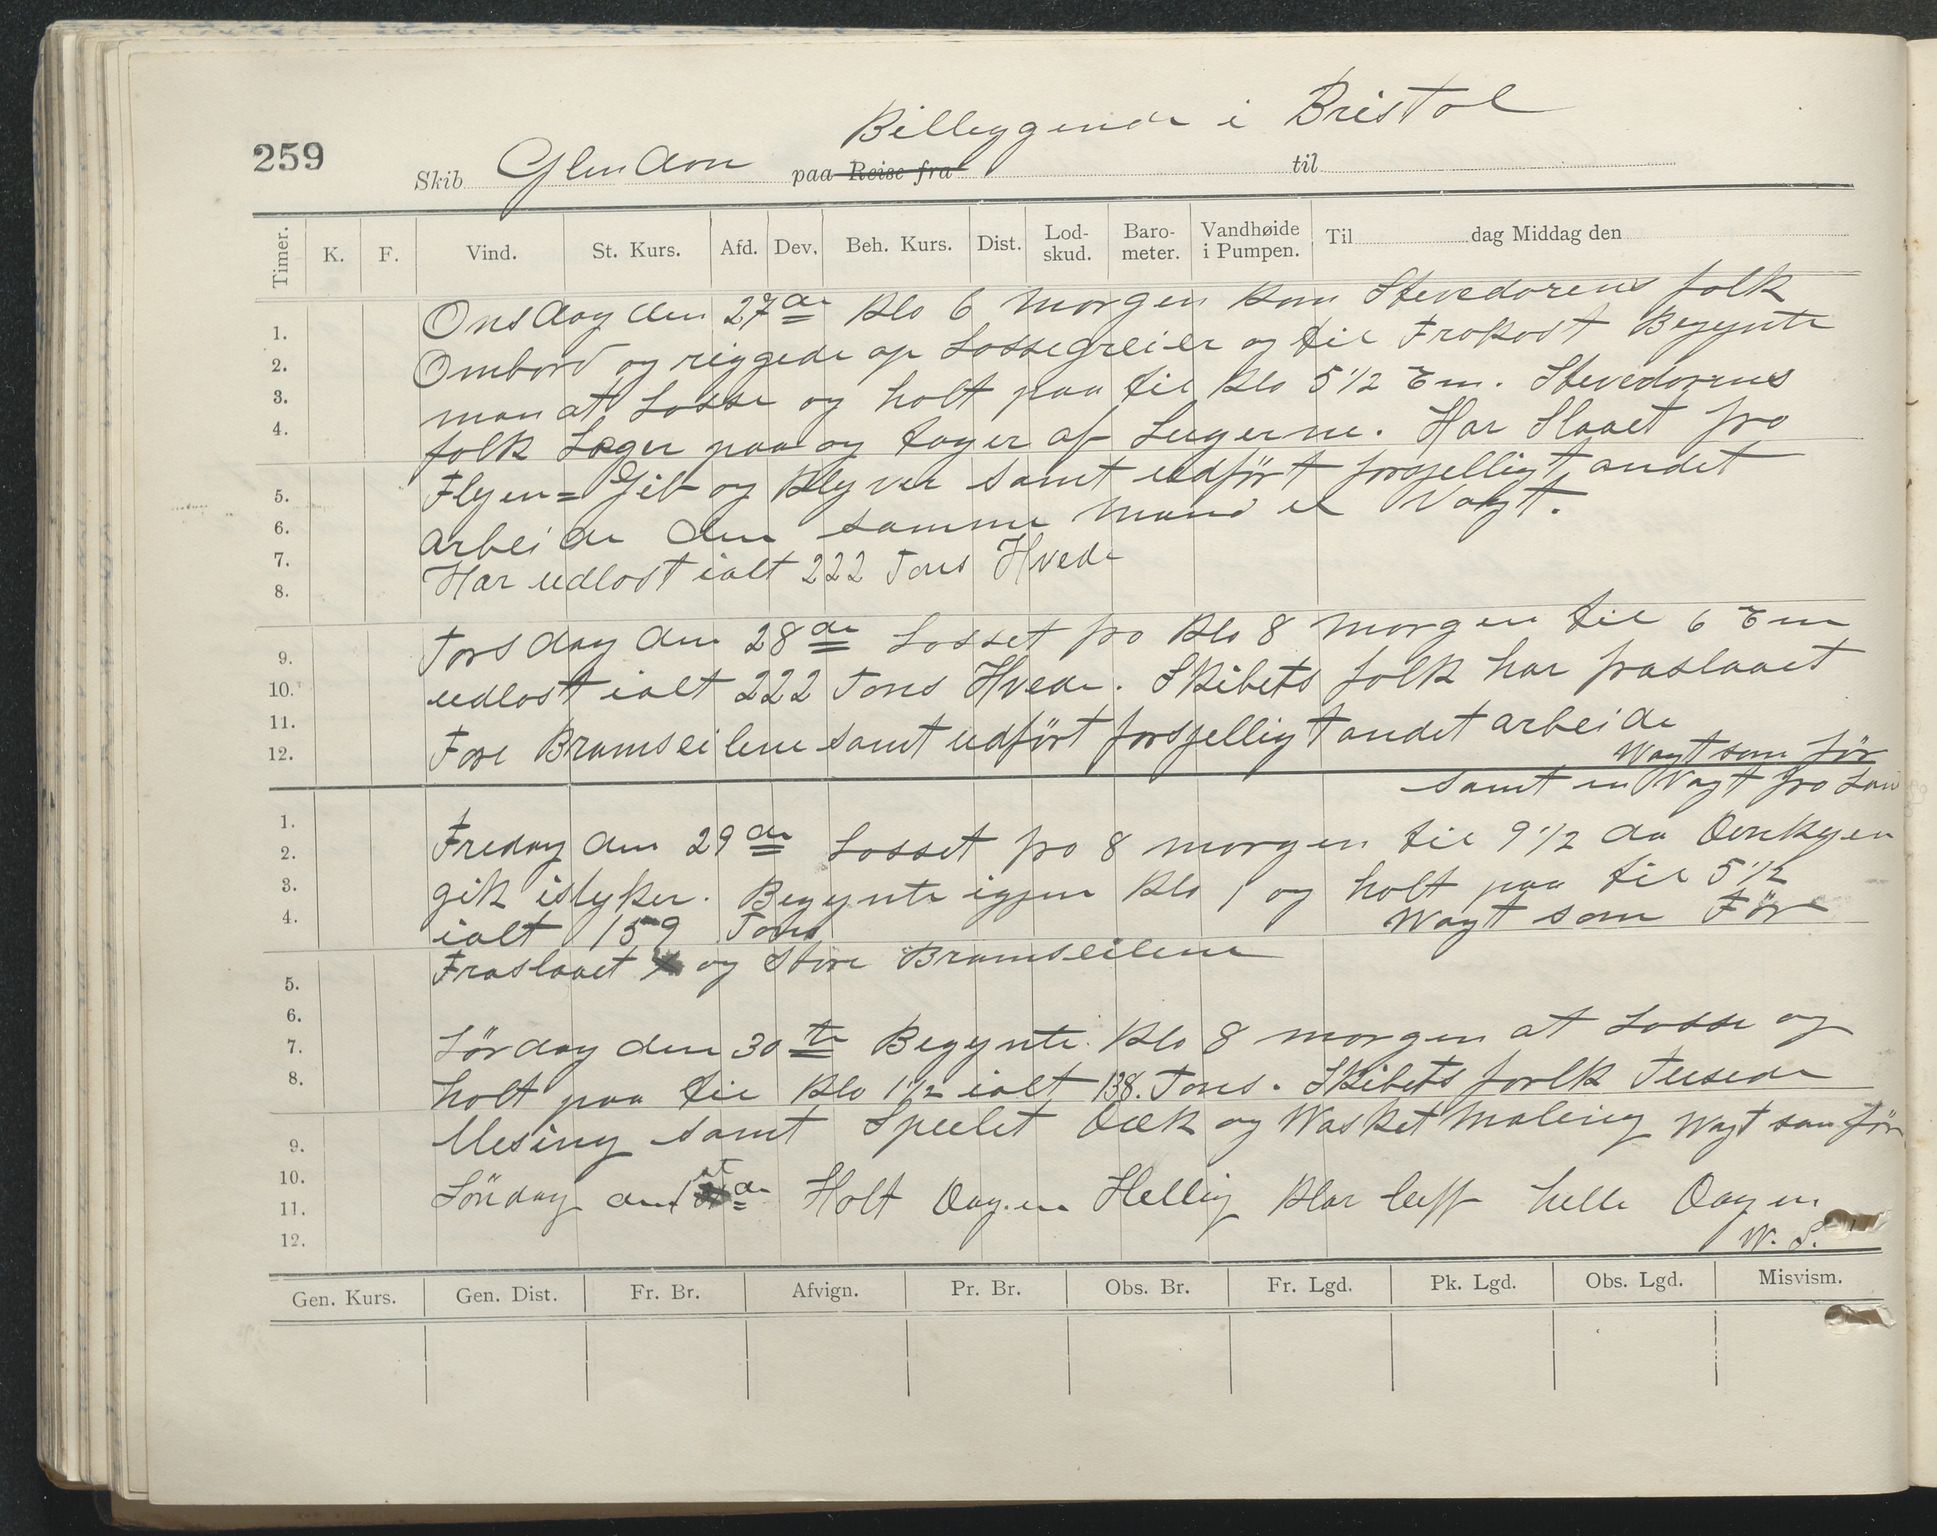 259
Billeggende i Bristol
Skib Glendoon paa Reise fra til
Timer. K. F. Vind. St. Kurs. Afd. Dev. Beh. Kurs. Dist. Lod-skud. Baro-meter. Vandhøide i Pumpen. Til dag Middag den
Onsdag den 27de Klo 6 morgen kom Stevedorens folk
1.
Ombord og riggede op Lossegreier og til Frokost Begynte
2.
man at Losse og holt paa til Klo 5 1/2 Em. Stevedorens
3.
folk Læger paa og tager af Lugerne. Har Slaaet fra
4.
Flyen= Jib og Klyver samt udført forsjelligt andet
5.
arbeide den samme mand er Vagt.
6.
Har udlost ialt 222 Tons Hvede
7.
8.
Torsdag den 28de Losset fra Klo 8 morgen til 6 Em
9.
udlost ialt 222 Tons Hvede. Skibets folk har fraslaaet
10.
11.
Fore Bramseilene samt udført forsjelligt andet arbeide
12.
Wagt som før
samt en Vagt fra Lan
1.
Fredag den 29de Losset fra 8 morgen til 9 1/2 da Donkyen
2.
gik istyker. Begynte igjen Klo 1 og holt paa til 5 1/2
3.
ialt 159 Tons Wagt som Før
4.
Fraslaaet og Store Bramseilene
5.
6.
Lørdag den 30te Begynte Klo 8 morgen at Losse og
7.
holt paa til Klo 1 1/2 ialt 138. Tons. Skibets forlk Pusede
8.
Mesing samt Speelet Dæk og Wasket Maling Wagt som før
9.
10.
Söndag den 1st de Holt Dagen Hellig Klar luft helle Dagen
11.
12.
W. S.
Gen. Kurs. Gen. Dist. Fr. Br. Afvign. Pr. Br. Obs. Br. Fr. Lgd. Pk. Lgd. Obs. Lgd. Misvism.